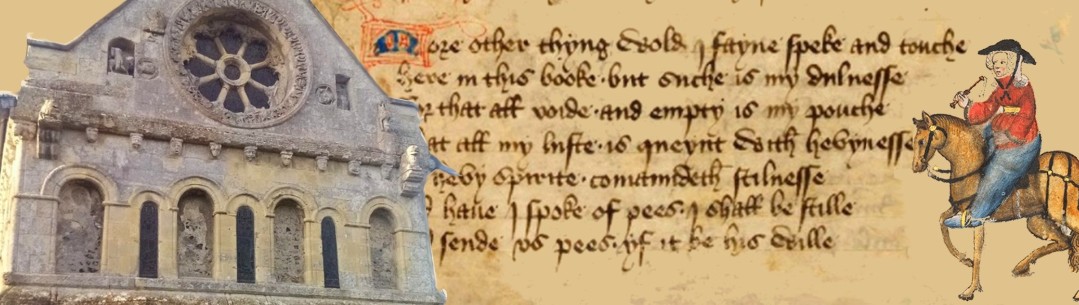 More other thyng wold I fayne speke and touche
here in this booke · but suche is my dulnesse
that all voide · and empty is my pouche
all my luste · is queynt with hevynesse
hevy spirite · comaundeth stilnesse
haue I spoke of pees · I shall be stille
sende vs pees · yf it be his wille